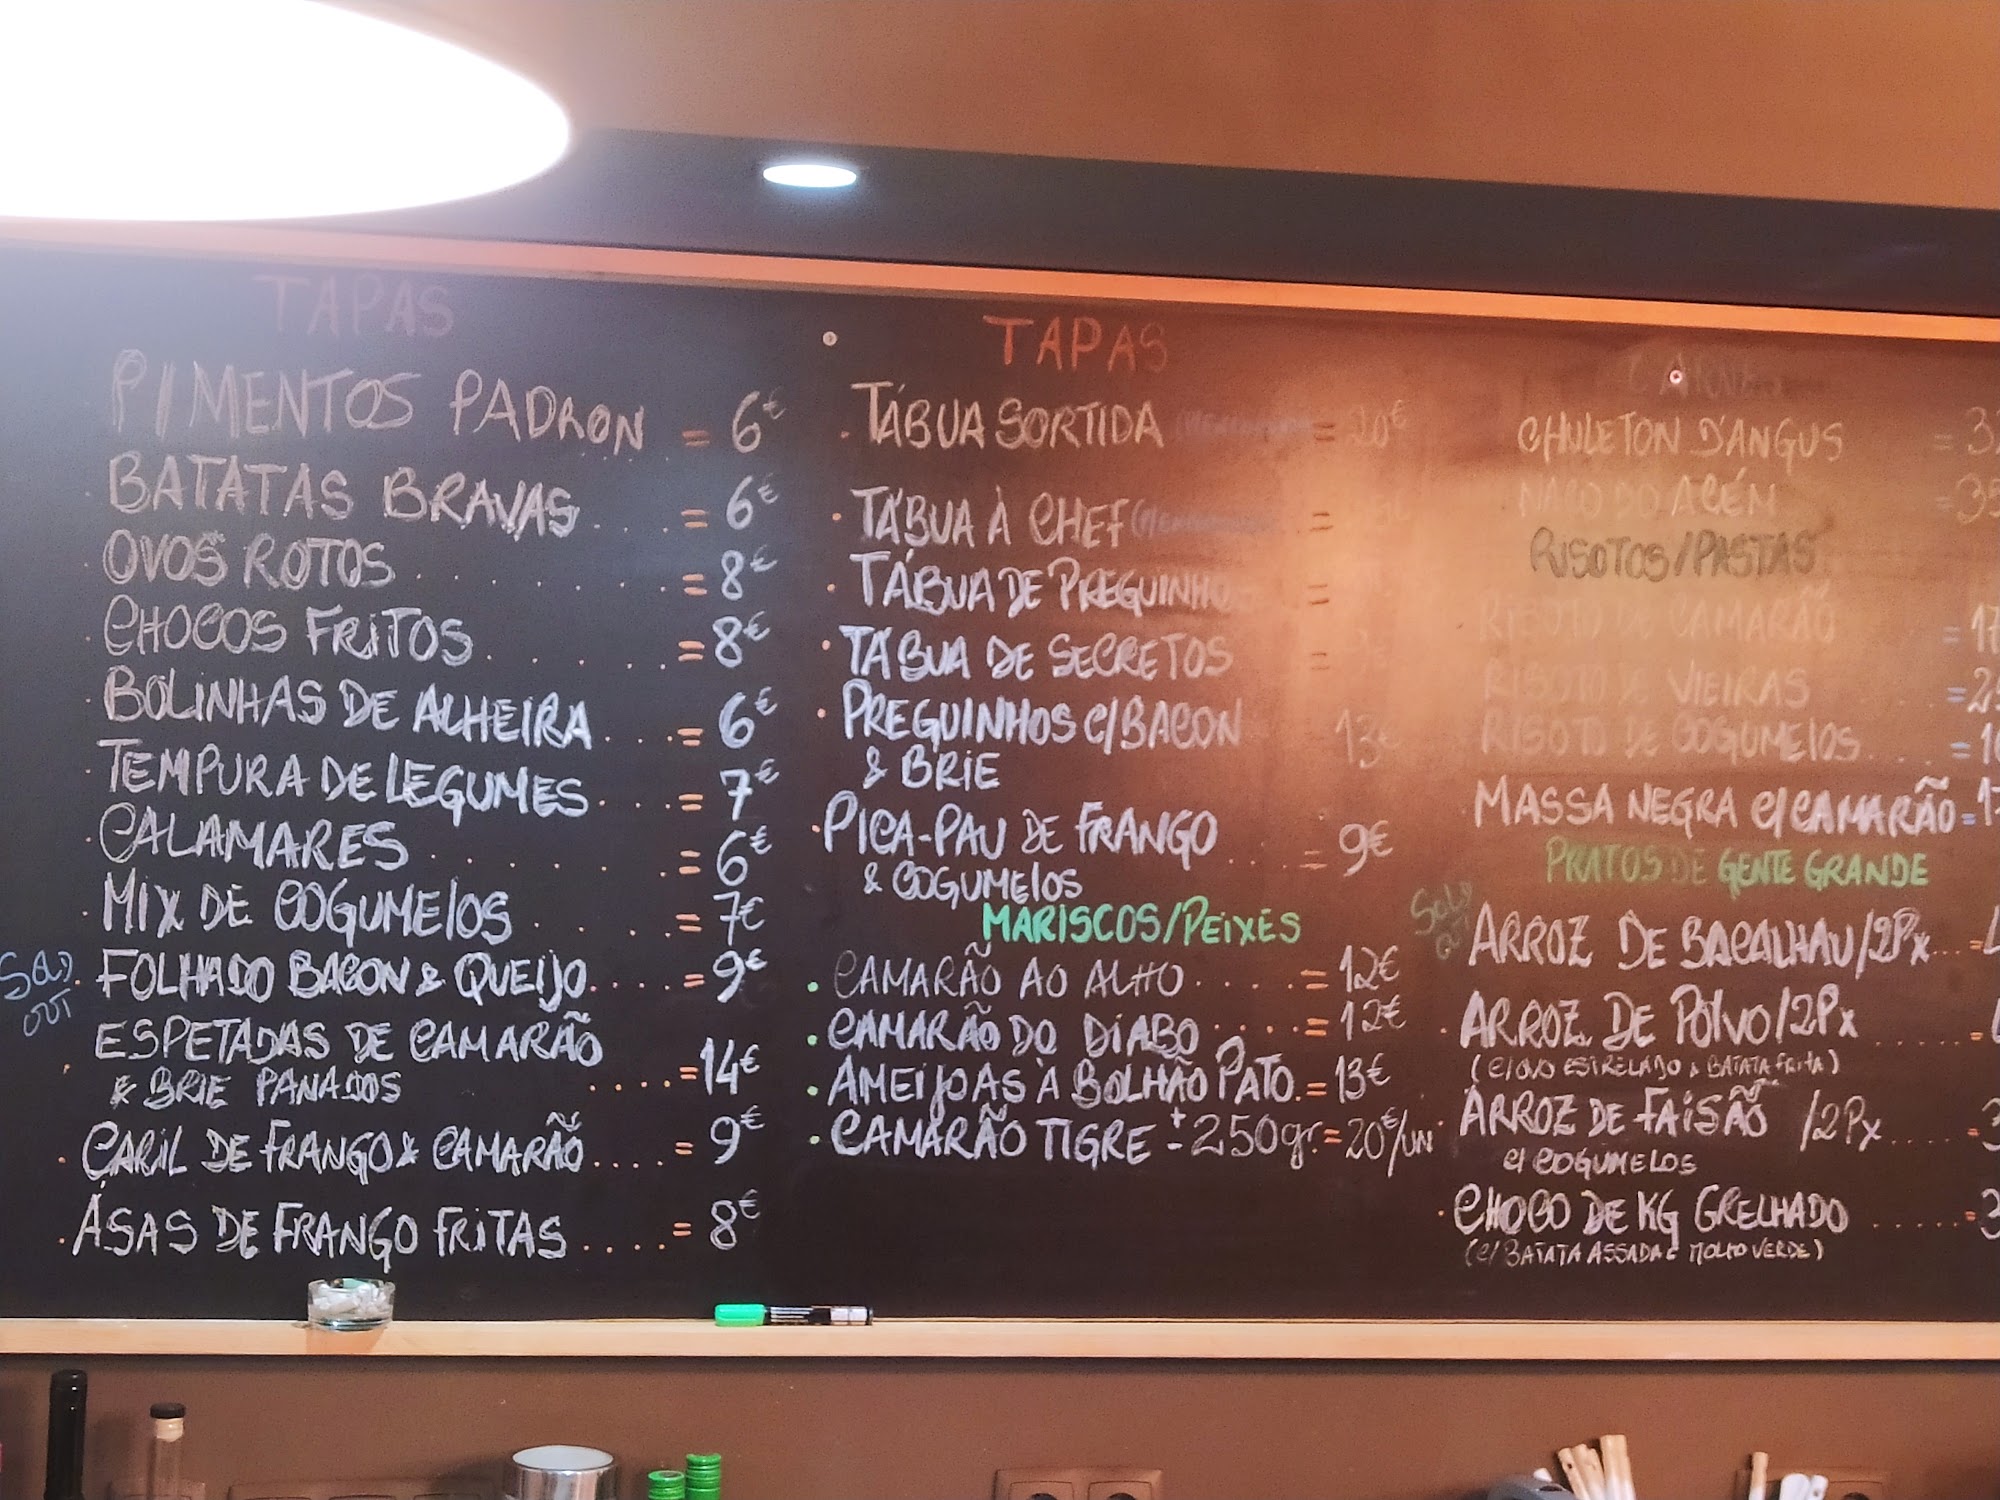 TAPAS
PIMENTOS PADRON = 6€
BATATAS BRAVAS.....= 6€
OVOS ROTOS.......= 8€
CHOCOS FRITOS......= 8€
BOLINHAS DE ALHEIRA....= 6€
TEMPURA DE LEGUMES....= 7€
CALAMARES.......= 6€
MIX DE COGUMELOS.....= 7€
SOLD OUT
FOLHADO BACON & QUEIJO....= 9€
ESPETADAS DE CAMARÃO
& BRIE PANADOS ....= 14€
CARIL DE FRANGO & CAMARÃO....= 9€
ASAS DE FRANGO FRITAS....= 8€
TAPAS
TÁBUA SORTIDA = 20€
TÁBUA À CHEF =
TÁBUA DE PREGUINHOS =
TÁBUA DE SECRETOS =
PREGUINHOS C/BACON 13€
& BRIE
PICA-PAU DE FRANGO ....= 9€
& COGUMELOS
MARISCOS/PEIXES
CAMARÃO AO ALHO.....= 12€
CAMARÃO DO DIABO.....= 12€
AMEIJOAS À BOLHÃO PATO.= 13€
CAMARÃO TIGRE ± 250gr.= 20€/UN
CHULETON D'ANGUS =
NACO DO ACÉN = 35
RISOTOS/PASTAS
RISOTO DE CAMARÃO = 17
RISOTO DE VIEIRAS =
RISOTO DE COGUMELOS....=
MASSA NEGRA C/CAMARÃO=
PRATOS DE GENTE GRANDE
SOLD OUT
ARROZ DE BACALHAU/2Px...=
ARROZ DE POLVO/2Px .....=
(C/OVO ESTRELADO & BATATA FRITA)
ARROZ DE FAISÃO /2Px.....=
C/ COGUMELOS
CHOCO DE KG GRELHADO .....=
(C/BATATA ASSADA E MOLHO VERDE)